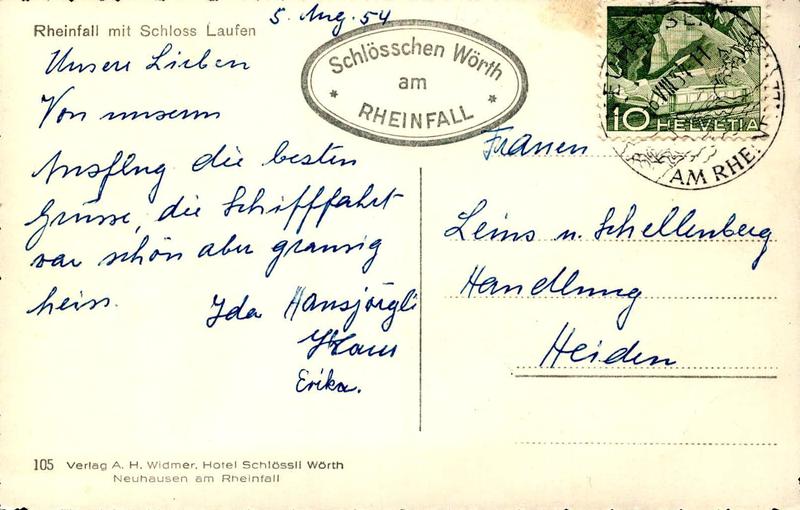 5. Aug. 54
Rheinfall mit Schloss Laufen
Unsere Lieben
Von unserm
Ausflug die besten
Grüsse, die Schifffahrt
war schön aber grausig
heiss.
Ida Hansjörgli
Hans
Erika.
105 Verlag A. H. Widmer, Hotel Schlössli Wörth
Neuhausen am Rheinfall
Schlösschen Wörth
am
* RHEINFALL *
10 HELVETIA
AM RHEINFALL
Frauen
Leins u. Schellenberg
Handlung
Heiden